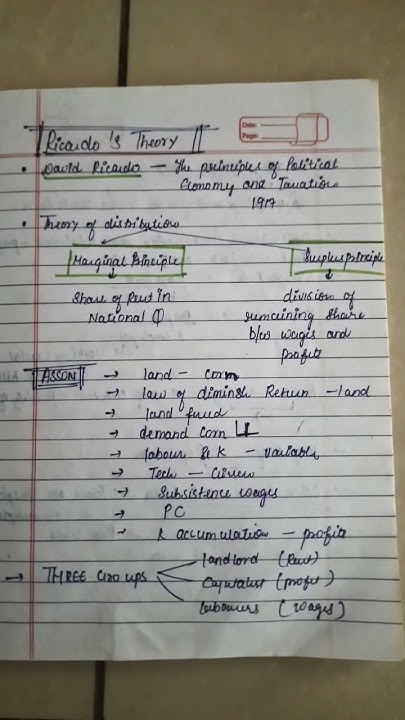 Ricardo's Theory
Date:
Page:
• David Ricardo — The principles of Political
Economy and Taxation
1917
• Theory of distribution
Marginal Principle
Surplus principle
Share of Rent in
National
division of
remaining share
b/w wages and
profits
ASSON → land - corn
→ law of diminsh Return - land
→ land fixed
→ demand corn
→ labour & K - variable
→ Tech - Given
→ Subsistence wages
→ PC
→ K accumulation - profits
→ THREE Groups
landlord (Rent)
Capitalist (profit)
labourers (wages)